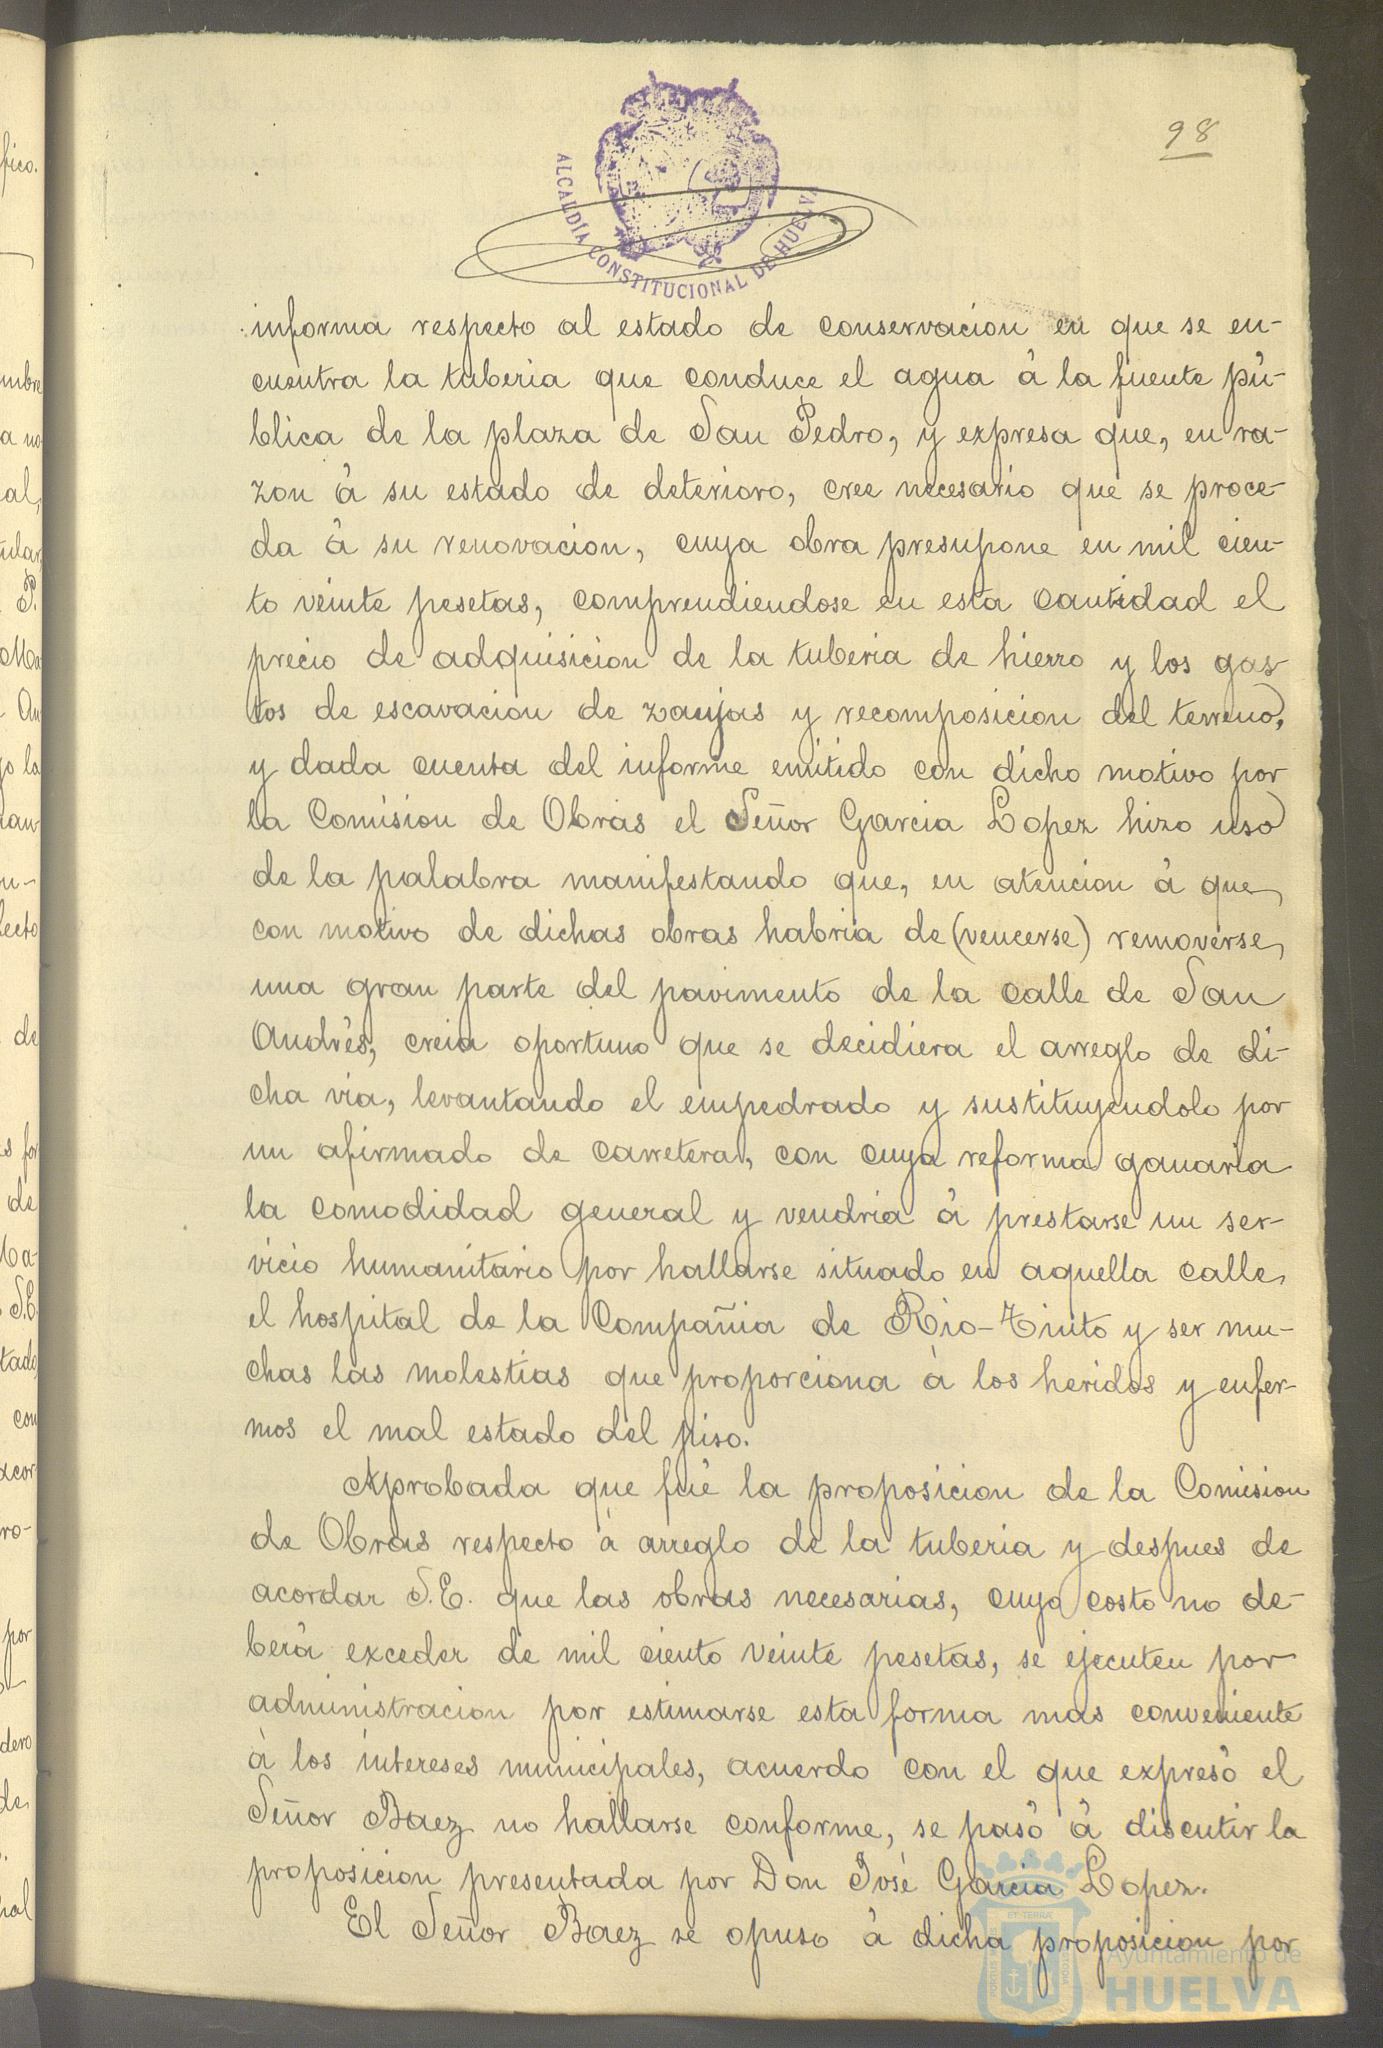 98
ALCALDÍA CONSTITUCIONAL DE HUELVA
informa respecto al estado de conservacion en que se en-
cuentra la tuberia que conduce el agua á la fuente pú-
blica de la plaza de San Pedro, y expresa que, en ra-
zon á su estado de deterioro, cree necesario que se proce-
da á su renovacion, cuya obra presupone en mil cien-
to veinte pesetas, comprendiendose en esta cantidad el
precio de adquisicion de la tuberia de hierro y los gas
tos de escavacion de zanjas y recomposicion del terreno,
y dada cuenta del informe emitido con dicho motivo por
la Comision de Obras el Señor Garcia Lopez hizo uso
de la palabra manifestando que, en atencion á que
con motivo de dichas obras habria de (vencerse) removerse
una gran parte del pavimento de la calle de San
Andrés, creia oportuno que se decidiera el arreglo de di-
cha via, levantando el empedrado y sustituyendolo por
un afirmado de carretera, con cuya reforma ganaria
la comodidad general y vendria á prestarse un ser-
vicio humanitario por hallarse situado en aquella calle
el hospital de la Compañia de Rio-Tinto y ser mu-
chas las molestias que proporciona á los heridos y enfer-
mos el mal estado del piso.
Aprobada que fué la proposicion de la Comision
de Obras respecto á arreglo de la tuberia y despues de
acordar S.E. que las obras necesarias, cuyo costo no de-
berá exceder de mil ciento veinte pesetas, se ejecuten por
administracion por estimarse esta forma mas conveniente
á los intereses municipales, acuerdo con el que expresó el
Señor Baez no hallarse conforme, se pasó á discutir la
proposicion presentada por Don José Garcia Lopez.
El Señor Baez se opuso á dicha proposicion por
Ayuntamiento de
HUELVA